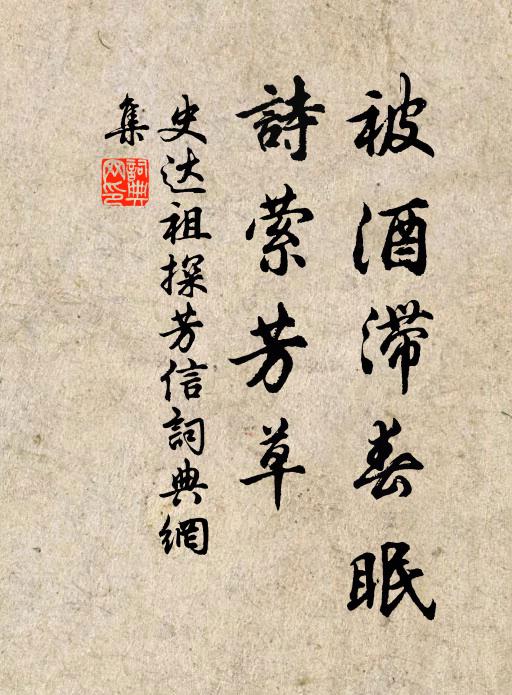 被酒滞春眠
詩萦芳草
史达祖探芳信詞典網
集
詞典网印